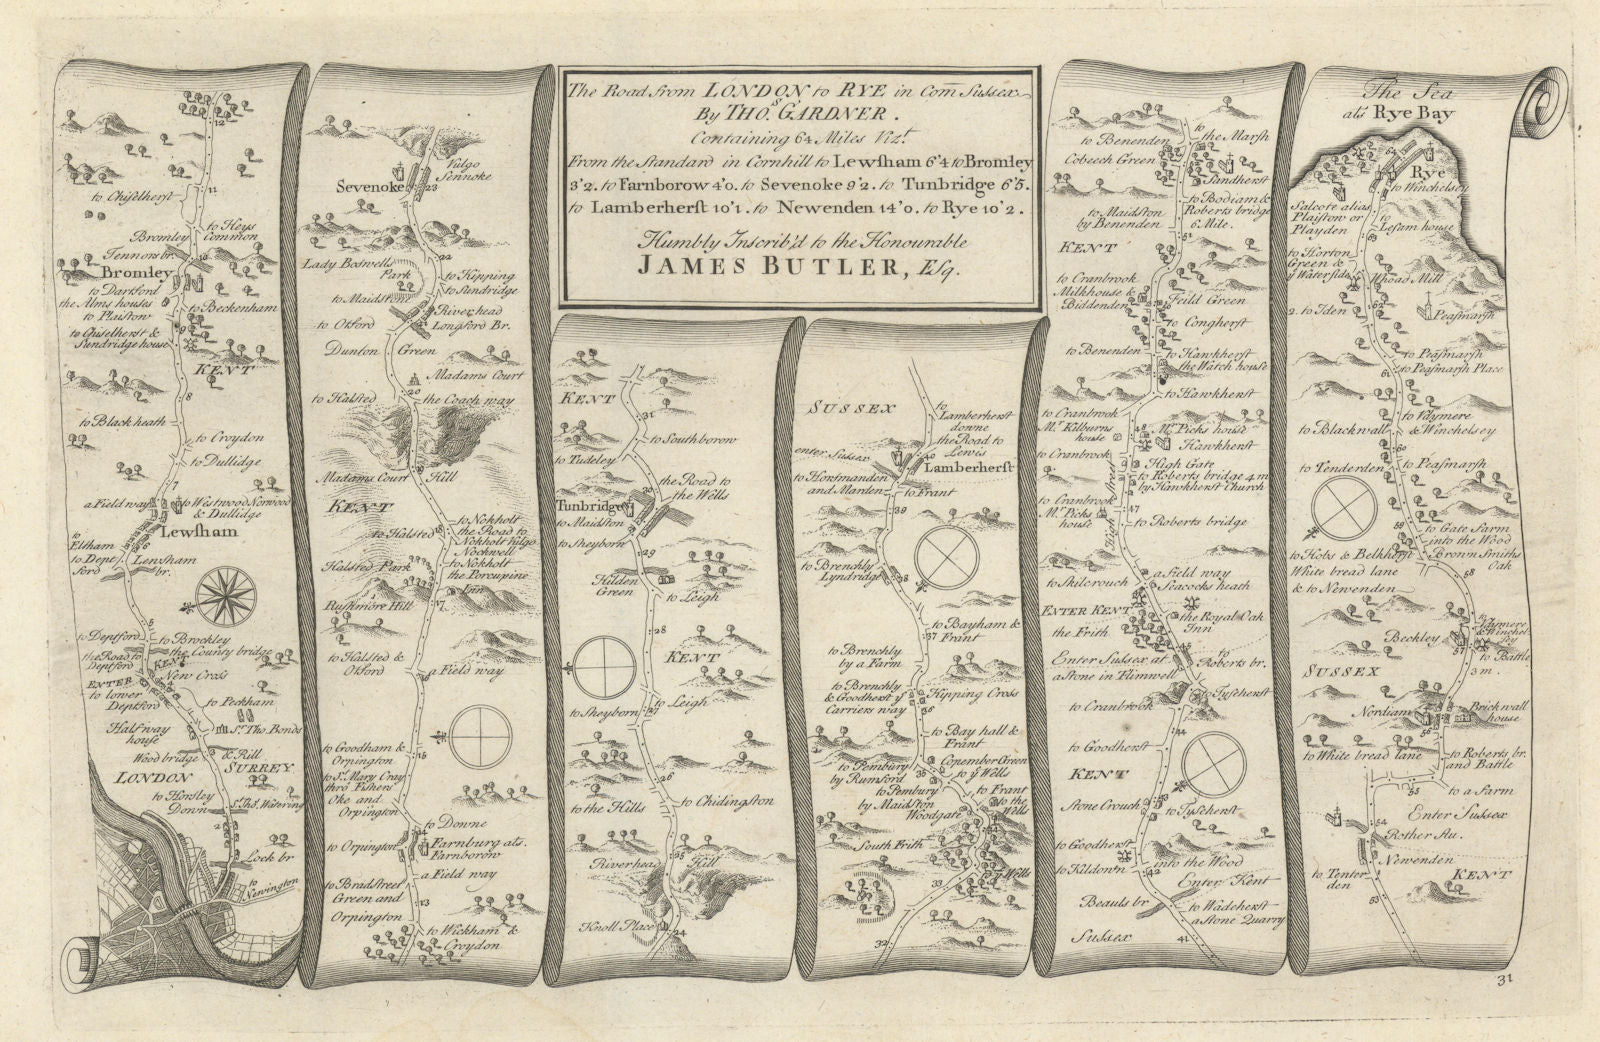 The Road from LONDON to RYE in Com Sussex
By THOS. GARDNER.
Containing 64 Miles Vizt.
From the Standard in Cornhill to Lewſham 6'4 to Bromley
3'2. to Farnborow 4'0. to Sevenoke 9'2. to Tunbridge 6'5.
to Lamberherſt 10'1. to Newenden 14'0. to Rye 10'2.
Humbly Inscrib'd to the Honourable
JAMES BUTLER, Esq.
12
11
to Chiſelherst
to Heys
Common
Bromley
10
Bromley
to Dartford
the Alms houses
to Plaistow
to Beckenham
9
to Chiselherst &
Sundridge house
KENT
8
to Black heath
to Croydon
to Dullidge
7
a Field way
to Westwood Norwood
& Dullidge
Lewſham
6
to
Eltham
to Dept
ford
Lewsham
br.
5
to Deptford
to Brockley
the County bridge
the Road to
Deptford
KENT
New Cross
ENTER
to lower
Deptford
to Peckham
Half way
house
St. Tho. Bonds
Wood bridge
SURREY
LONDON
to Horsley
Down
St. Tho. Watering
2
Lock br
to
Newington
Vulgo
Sennoke
Sevenoke
23
Lady Boswells
Park
22
to Kipping
to Sundridge
to Maidst
River head
Longford Br.
to Otford
Dunton Green
Madams Court
20
to Halsted
the Coach way
19
Madams Court Hill
KENT
to Halsted
18
to Nokholt
the Road to
Nokholt Vulgo
Nockwell
to Nokholt
the Porcupine
Inn
Halsted Park
Rushmore Hill
17
to Halsted &
Otford
a Field way
to Goodham &
Orpington
15
to St. Mary Cray
thro' Fishers
Oke and
Orpington
to Downe
14
to Orpington
Farnburg als.
Farnborow
a Field way
to Bradstreet
Green and
Orpington
13
to Wickham &
Croydon
KENT
31
to Southborow
to Tudeley
the Road to
the Wells
30
Tunbridge
to Maidston
to Sheyborn
29
Hilden
Green
to Leigh
28
KENT
to Leigh
to Sheyborn
27
26
to the Hills
to Chidingston
25
Riverhead Hill
Knoll Place
24
SUSSEX
to
Lamberherst
downe
the Road to
Lewis
enter Sussex
40
Lamberherſt
to Horsmanden
and Marden
to Frant
39
to Brenchly
Lyndridge
38
to Bayham &
Frant
37
to Brenchly
by a Farm
to Brenchly
& Goodherst ye
Carriers way
Kipping Cross
36
to Bay hall &
Frant
Copember Green
to ye Wells
to Pembury
by Rumford
35
to Pembury
by Maidston
to Frant
to the
Wells
Woodgate
34
South Frith
33
ye Wells
32
to Benenden
to the Marsh
Cobeech Green
Sandherst
to Bodiam &
Roberts bridge
6 Mile.
to Maidston
by Benenden
51
KENT
to Cranbrook
Milkhouse &
Biddenden
Feild Green
50
to Congherst
to Benenden
to Hawkherst
the Watch house
49
to Hawkherst
to Cranbrook
Mr. Kilburns
house
48
Mr. Picks house
Hawkherst
to Cranbrook
High Gate
to Roberts bridge 4 m
by Hawkherst Church
to Cranbrook
Mr. Picks
house
High Street
47
to Roberts bridge
to Skilcrouch
a field way
Seacocks heath
ENTER KENT
the Frith
the Royal Oak
Inn
45
Enter Sussex at
a stone in Flimwell
to
Roberts br.
to Tyseherst
to Cranbrook
44
to Goodherst
KENT
43
Stone Crouch
to Tyseherst
to Goodherst
into the Wood
to Kildown
42
Enter Kent
Beauls br
to Wadeherst
a stone Quarry
Sussex
41
The Sea
als. Rye Bay
64
Rye
to Winchelsey
Salcote alias
Plaistow or
Playden
to
Lesam house
63
to Horton
Green &
ye Waterside
road Mill
62
to Iden
Peasmarsh
to Peasmarsh
to Peasmarsh Place
61
to Vdymere
& Winchelsey
to Blackwall
60
to Tenderden
to Peasmarsh
59
to Gate Farm
into the Wood
to Hobs & Belkherst
Brown Smiths
Oak
White bread lane
& to Newenden
58
Beckley
Vdymere
& Winchel
sey
57
to Battle
3 m.
SUSSEX
Nordiam
Brickwall
house
56
to White bread lane
to Roberts br.
and Battle
55
to a Farm
Enter Sussex
54
Rother flu.
Newenden
to Tenter
den
KENT
53
31